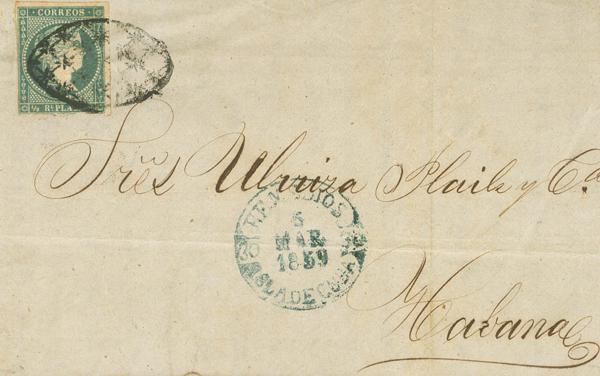 CORREOS
½ Rl PLA
Sres Ulruiza Plaile y Ca
REMEDIOS
5
MAR.
1859
ISLA DE CUBA
Habana